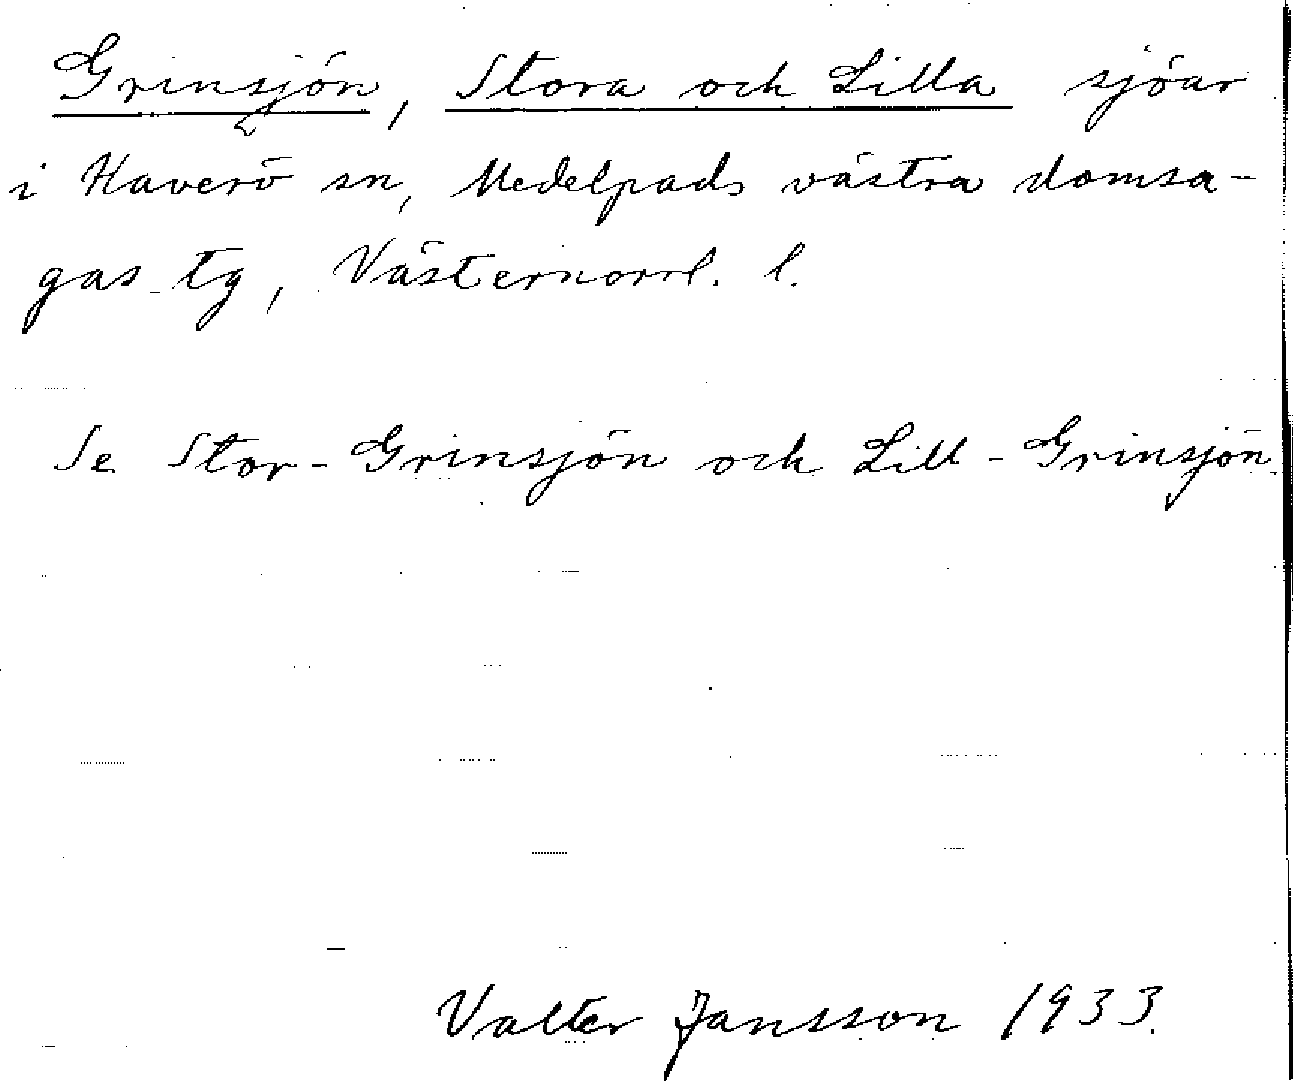 Grinsjön, Stora och Lilla sjöar
i Haverö sn, Medelpads västra domsa-
gas tg, Västernorrl. l.
Se Stor-Grinsjön och Lill-Grinsjön.
Valter Jansson 1933.